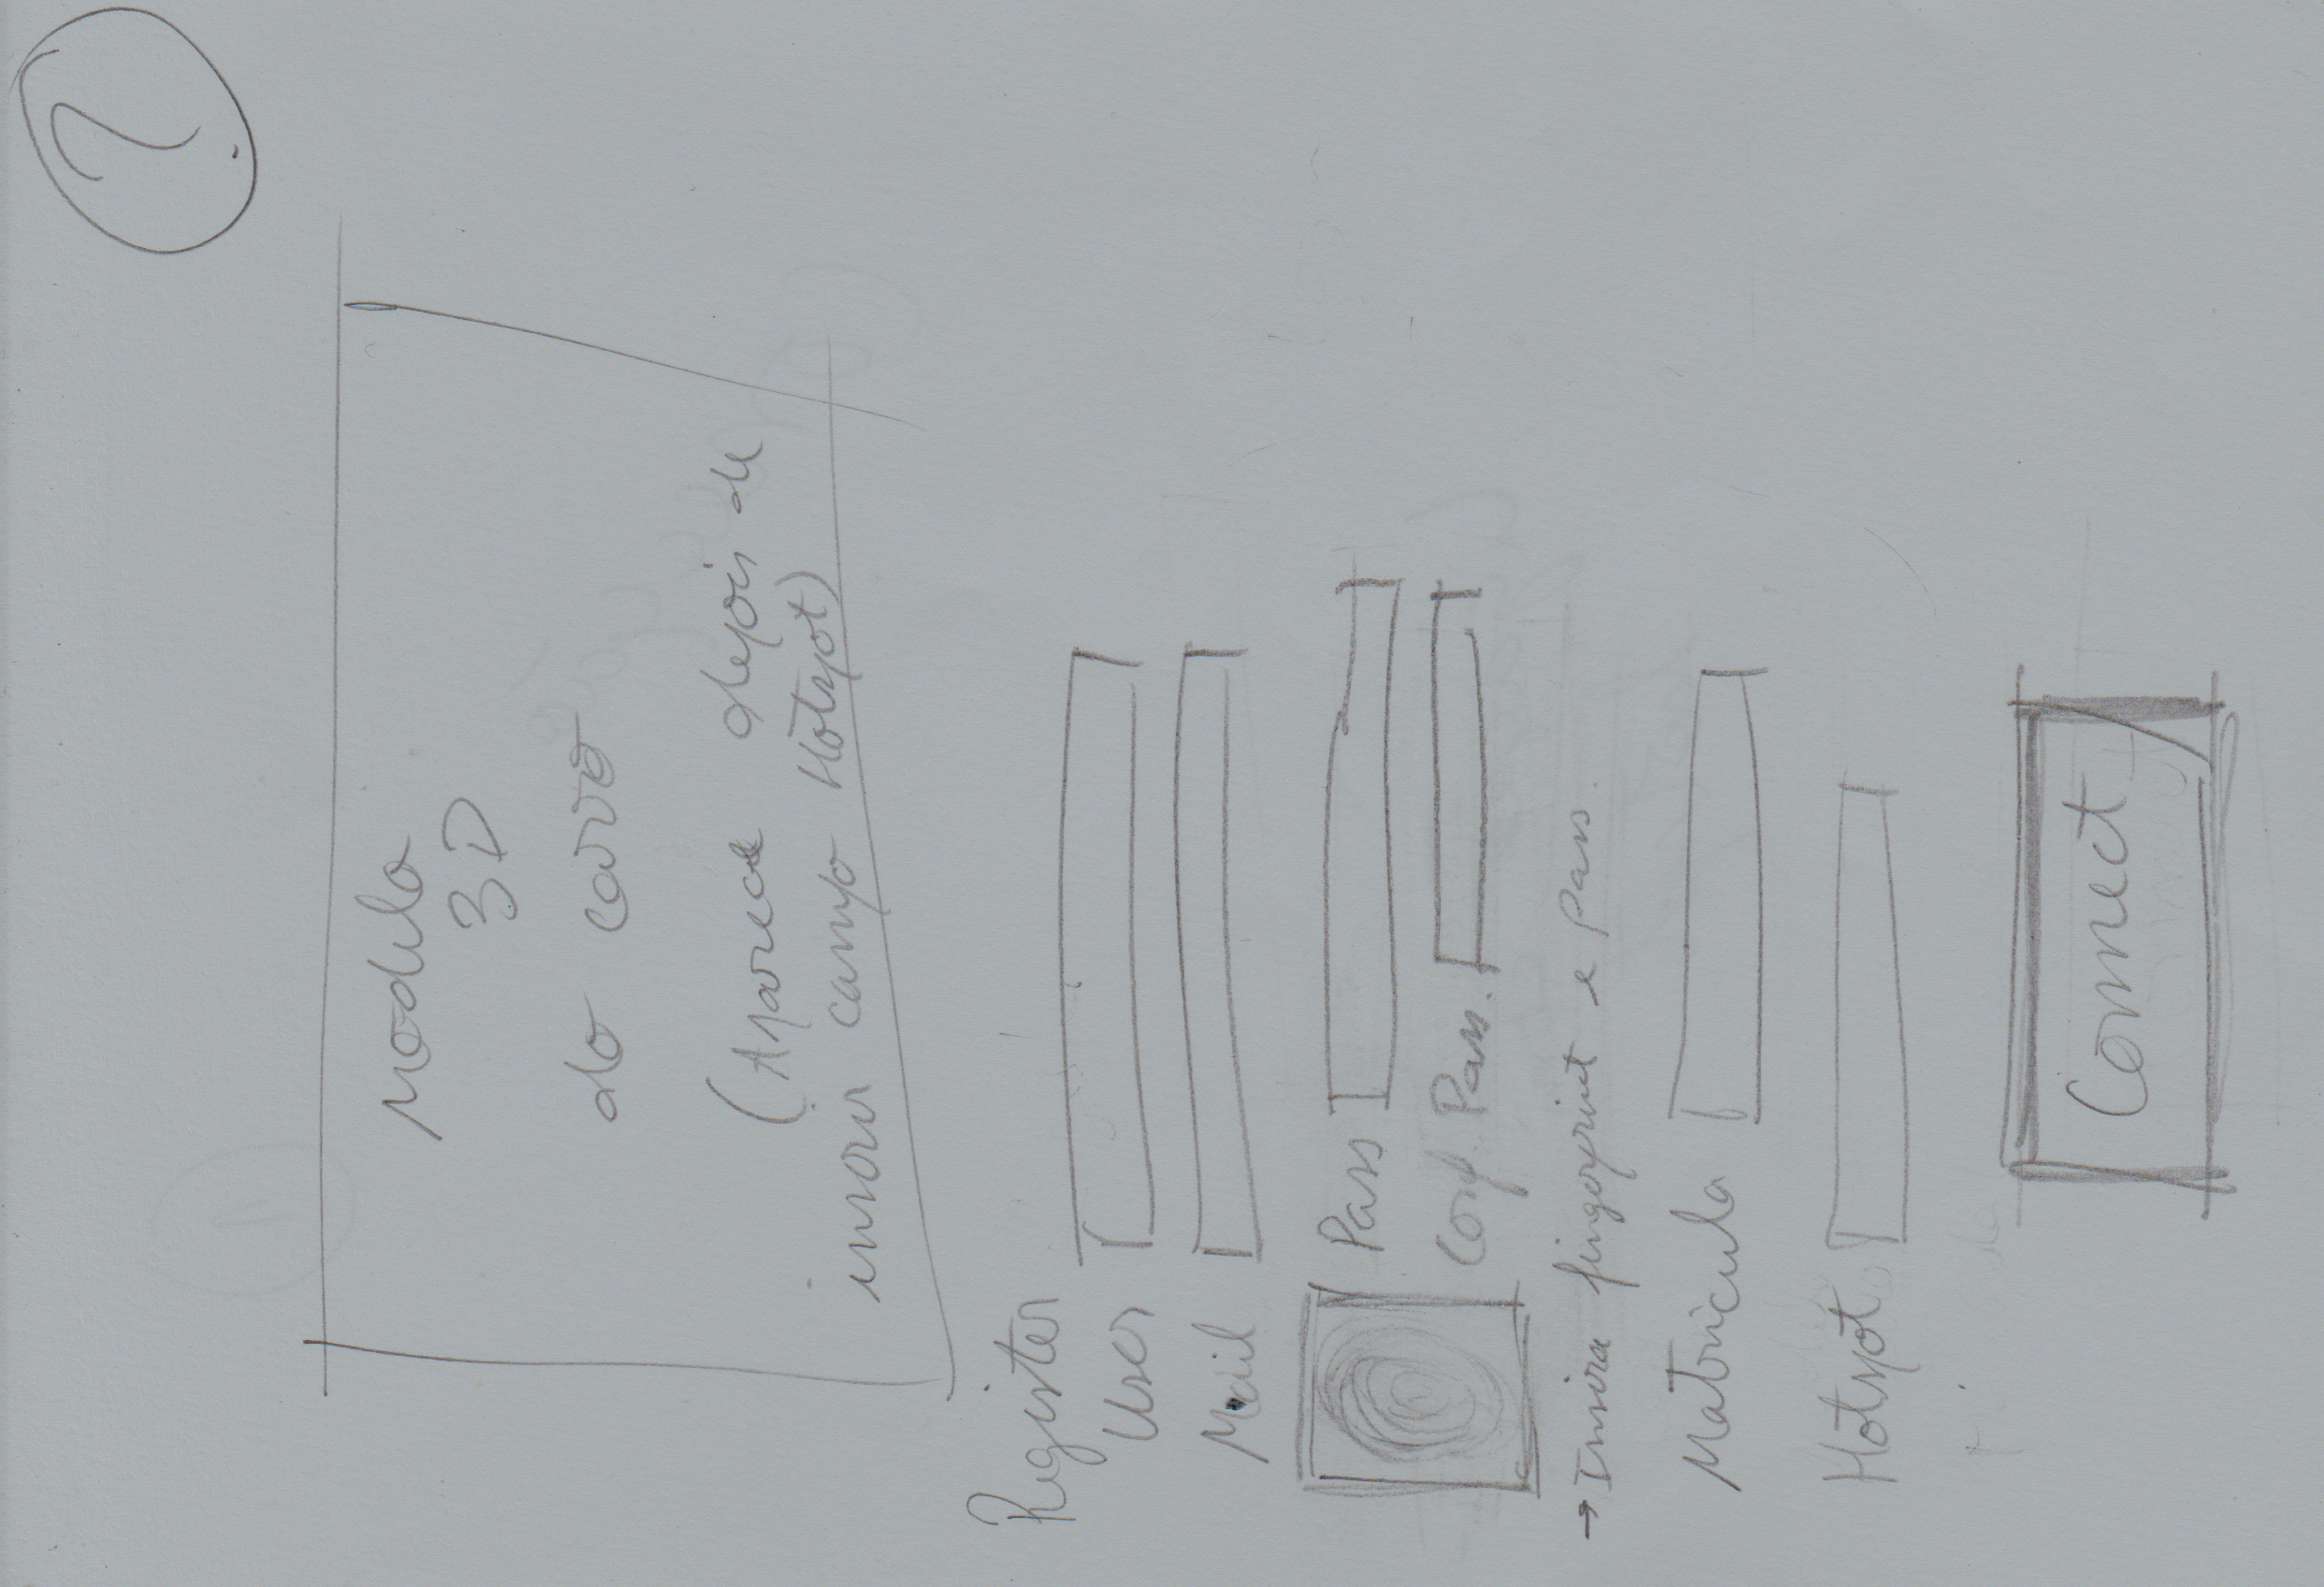 2
Modulo
3D
do carro
(Aparece depois de
inserir campo Hotspot)
Register
User
Mail
Pass
Conf. Pass.
→ Insira fingerprint e Pass.
Matricula
Hotspot
Connect